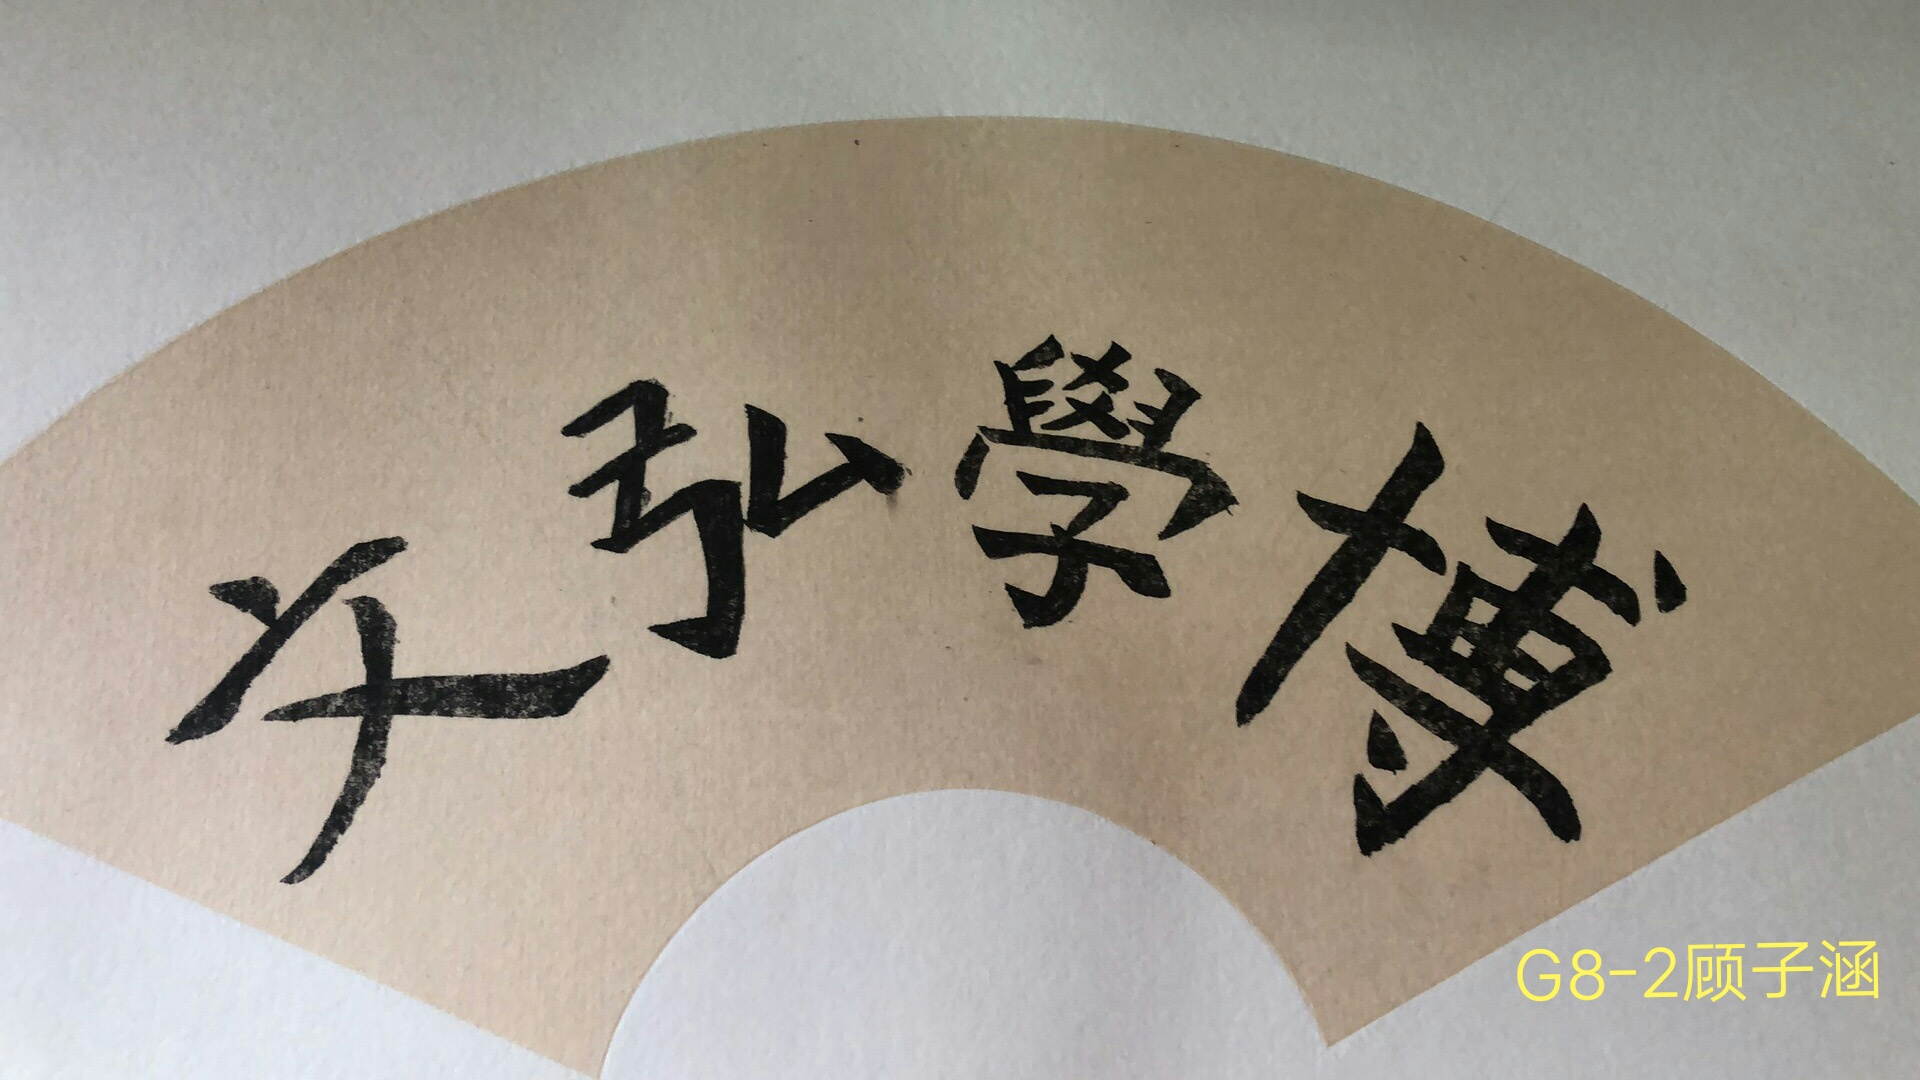 博學弘文
G8-2顾子涵